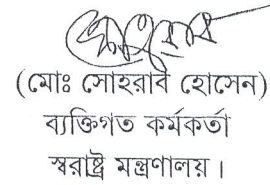 (মোঃ সোহরাব হোসেন)
ব্যক্তিগত কর্মকর্তা
স্বরাষ্ট্র মন্ত্রণালয়।